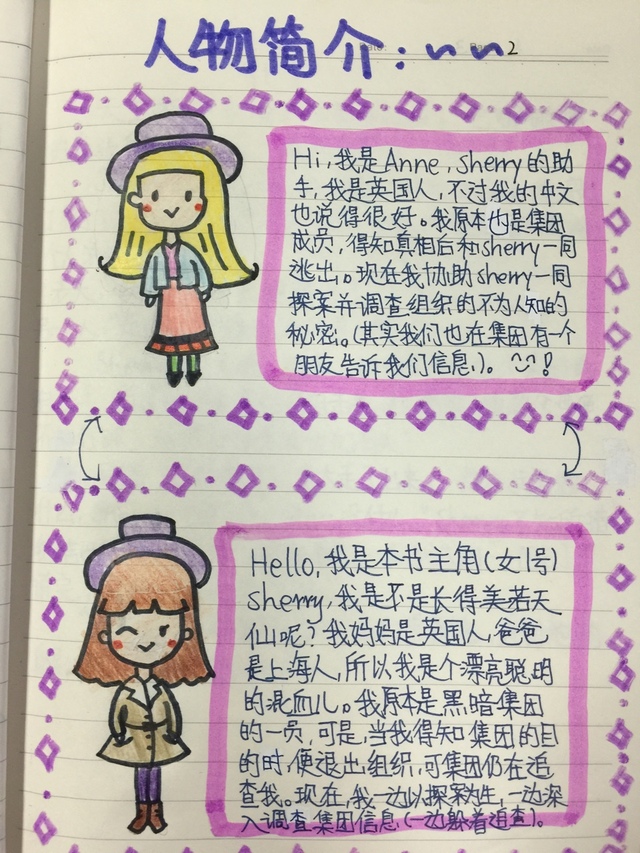 人物简介:~~ 2
Hi,我是Anne,sherry的助
手,我是英国人,不过我的中文
也说得很好。我原本也是集团
成员,得知真相后和sherry一同
逃出。现在我协助sherry一同
探案并调查组织的不为人知的
秘密。(其实我们也在集团有一个
朋友告诉我们信息)。^^!
Hello,我是本书主角(女1号)
sherry,我是不是长得美若天
仙呢?我妈妈是英国人爸爸
是上海人,所以我是个漂亮聪明
的混血儿。我原本是黑暗集团
的一员,可是,当我得知集团的目
的时,便退出组织,可集团仍在追
查我。现在,我一边以探案为生,一边深
入调查集团信息(一边躲着追查)。